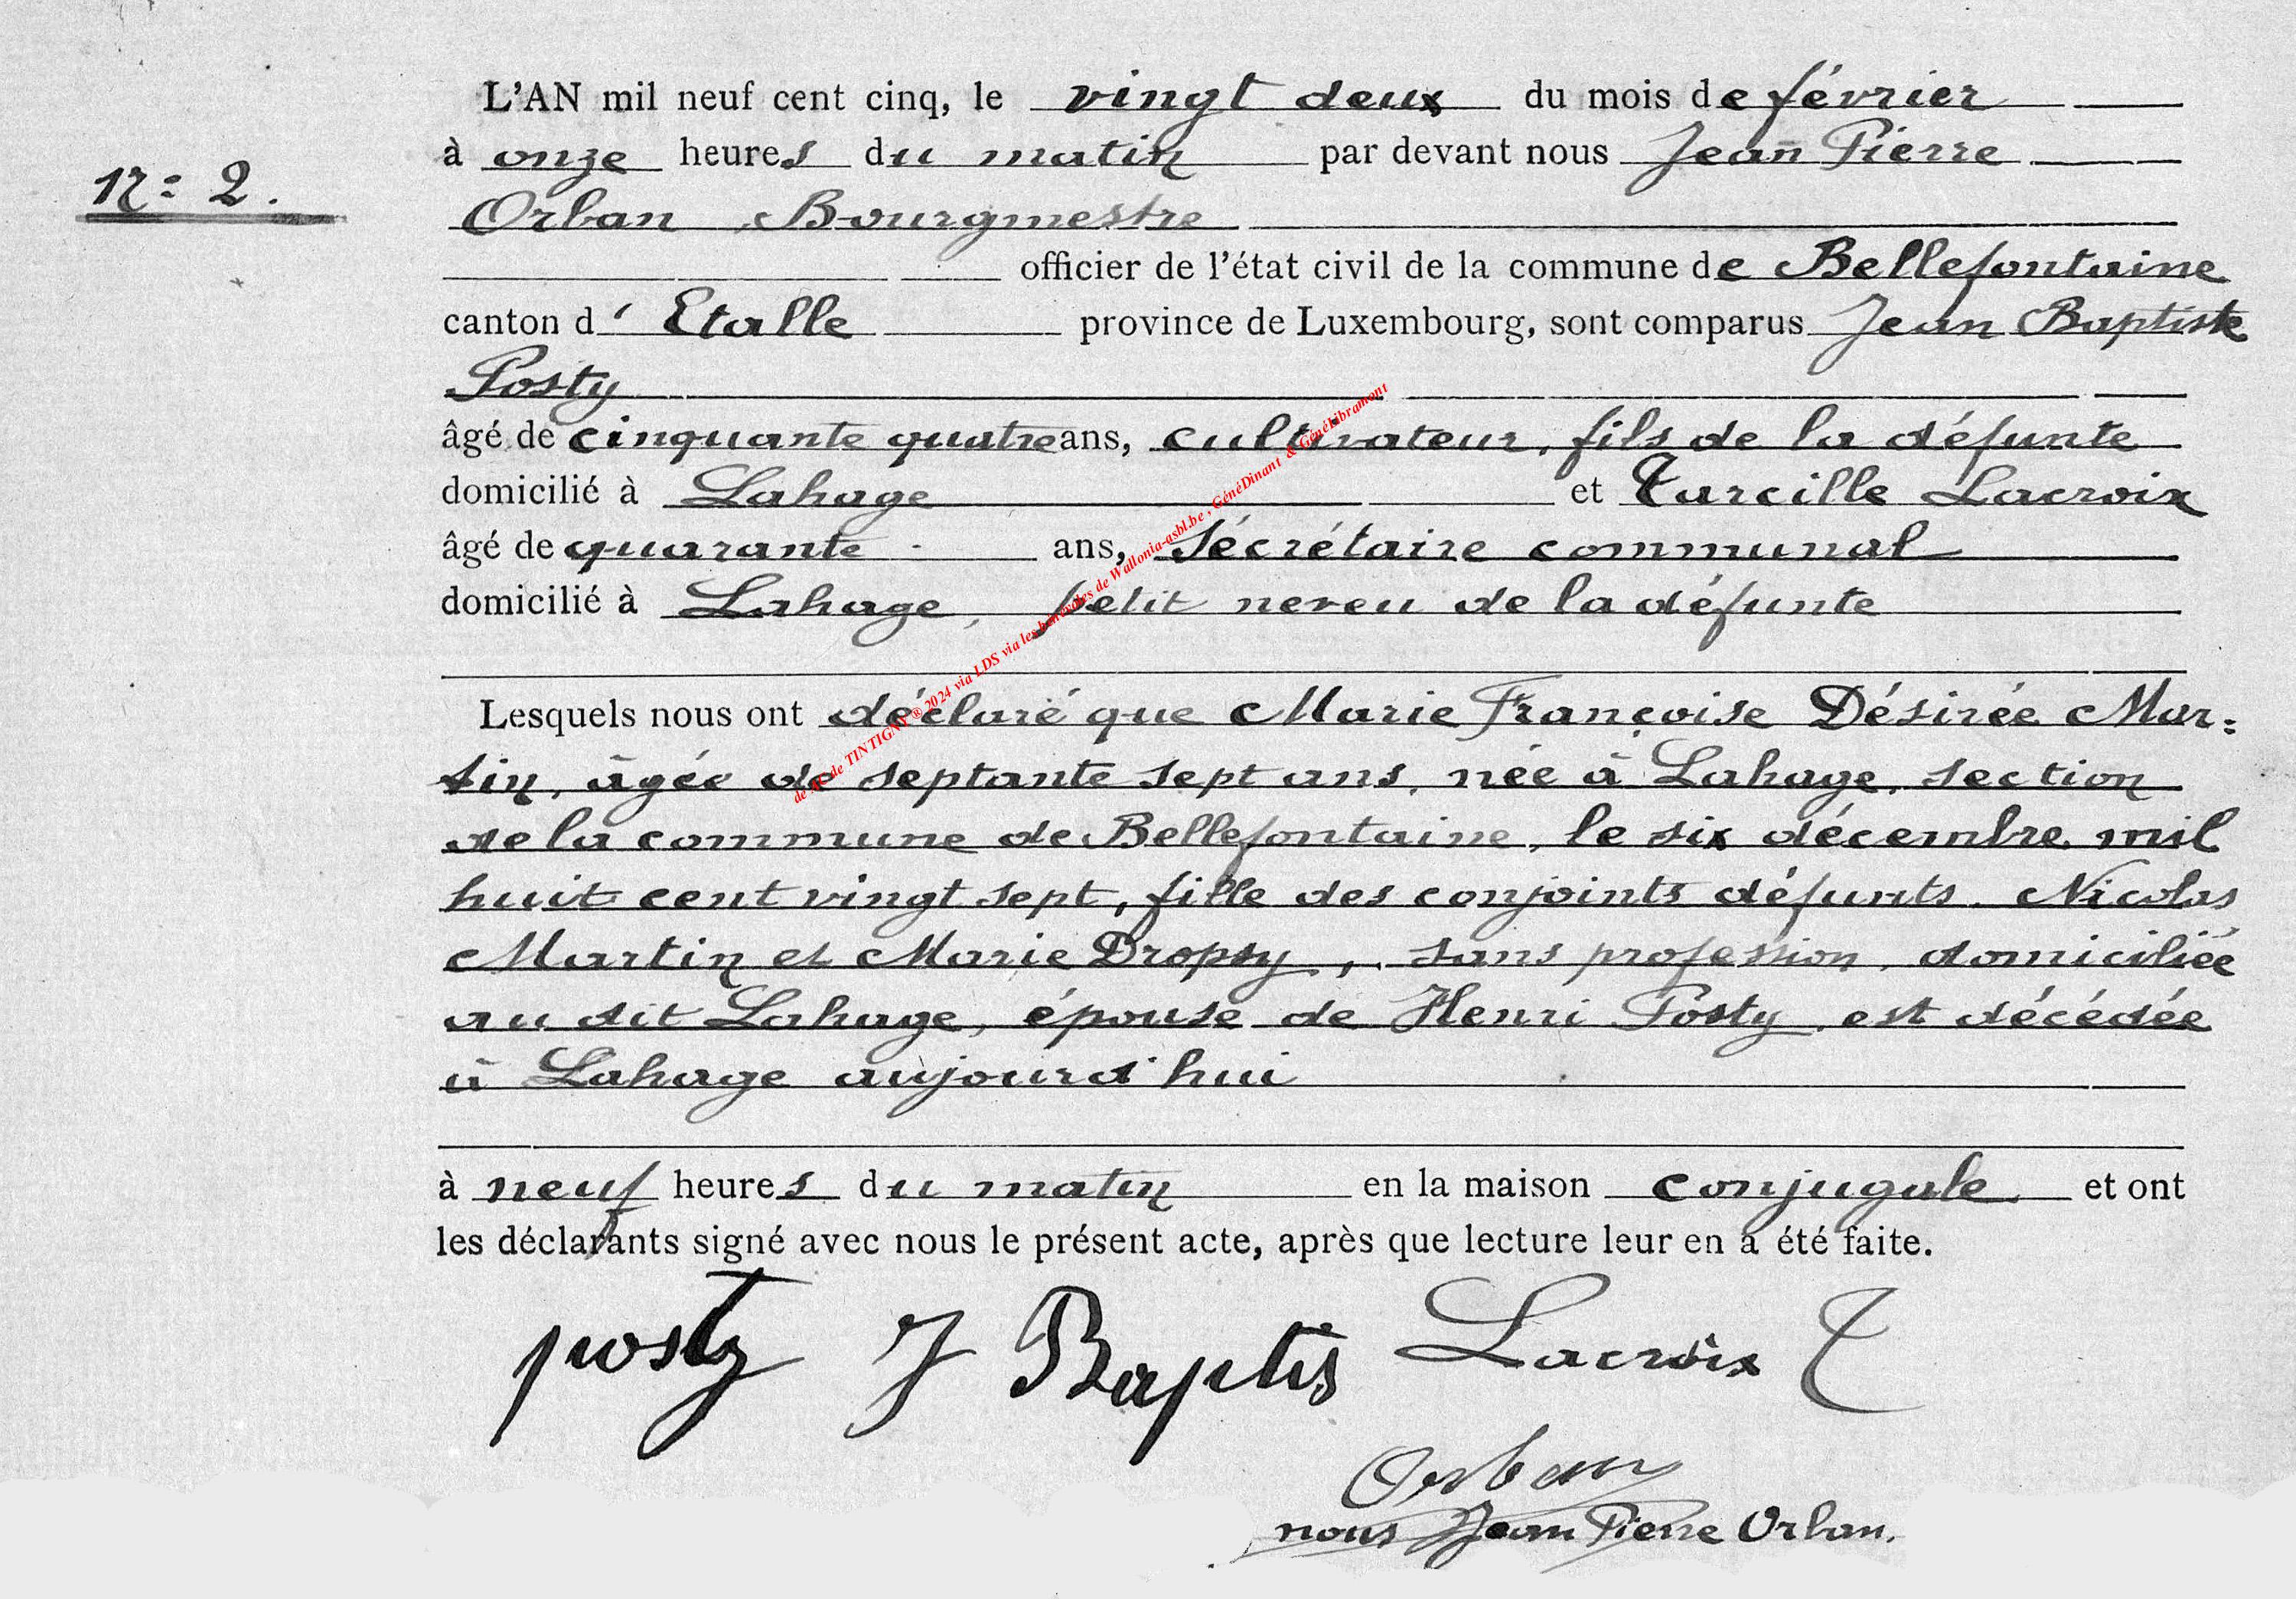 L'AN mil neuf cent cinq, le vingt deux du mois de février
à onze heures du matin par devant nous Jean Pierre
N: 2.
Orban, Bourgmestre
officier de l'état civil de la commune de Bellefontaine
canton d' Etalle province de Luxembourg, sont comparus Jean Baptiste
Posty
âgé de cinquante quatre ans, cultivateur, fils de la défunte
domicilié à Lahage et Turcille Lacroix
âgé de quarante ans, sécrétaire communal
domicilié à Lahage, petit neveu de la défunte
Lesquels nous ont déclaré que Marie Françoise Désirée Mar=
tin, âgée de septante sept ans, née à Lahage, section
de la commune de Bellefontaine, le six décembre mil
huit cent vingt sept, fille des conjoints défunts Nicolas
Martin et Marie Dropsy, sans profession, domiciliée
au dit Lahage, épouse de Henri Posty est décédée
à Lahage aujourd'hui
à neuf heures du matin en la maison conjugale et ont
les déclarants signé avec nous le présent acte, après que lecture leur en a été faite.
posty J Baptis Lacroix T
Orban
nous Jean Pierre Orban.
de de TINTIGNY ® 2024 via LDS via les bénévoles de Wallonia-asbl.be, GénéDinant & GénéLibramont